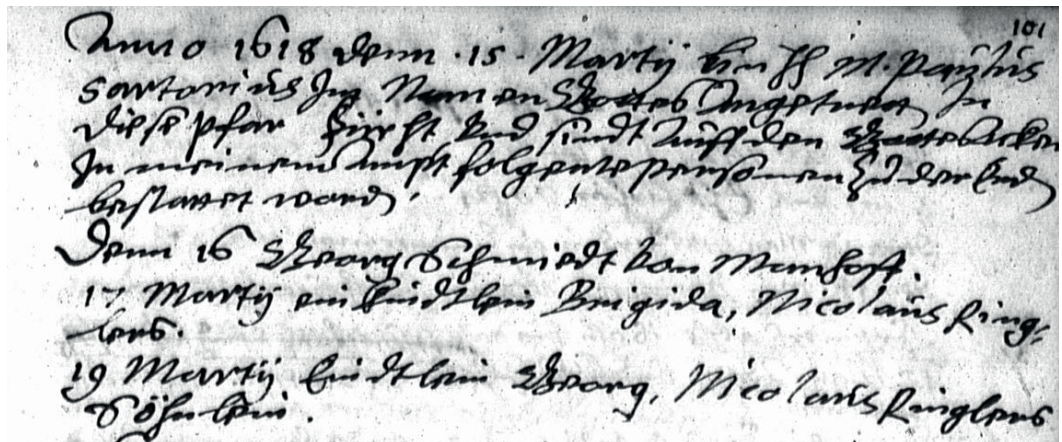 101
Anno 1618 denn .15. Martij bin Ich M. Paulus
Sartorius Im Namen Gottes Angetretten In
diese Pfar Kürcht Und sindt Auff den Gottesacker
In meinem Ampt folgente Personen Zu der Erd
bestattet word.
Denn 16 Georg Schmiedt von Manhoff.
17 Martij ein kindtlein Brigida, Nicolaus Ring-
lers.
19 Martij kindtlein Georg, Nicolaus Ringlers
Söhnlein.